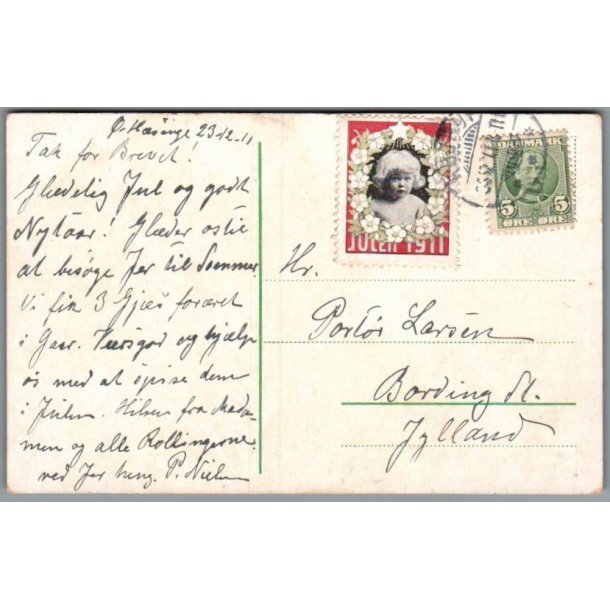 Ø. Hæsinge 23-12-11
Tak for Brevet!
Glædelig Jul og godt
Nytaar! Glæder os til
at besøge Jer til Sommer.
Vi fik 3 Gjæs foræret
i Gaar. Værsgod og hjælp
os med at spise dem
i Julen. Hilsen fra Mada-
men og alle Rollingerne.
ved Jer heng. P. Nielsen
JULEN 1911
DANMARK
5 5
ØRE ØRE
Hr.
Portør Larsen
Bording St.
Jylland